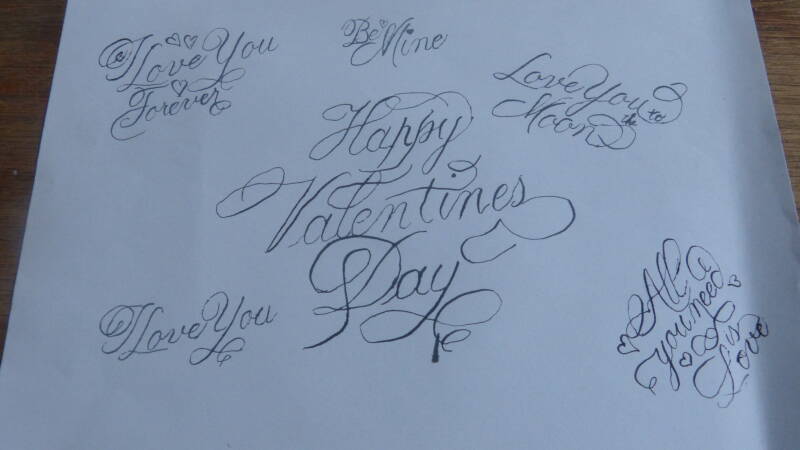 I Love You
Forever
Be Mine
Love You to
the
Moon
Happy
Valentines
Day
I Love You
All
you need
is
Love